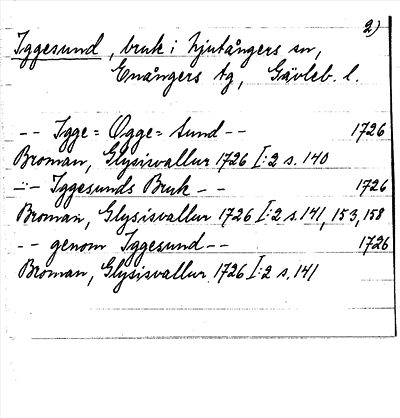 2)
Iggesund, bruk i Njutångers sn,
Enångers tg, Gävleb. l.
-- Igge = Ögge = Sund -- 1726
Broman, Glysisvallur 1726 I:2 s. 140
-- Iggesunds Bruk -- 1726
Broman, Glysisvallur 1726 I:2 s. 141, 153, 158
-- genom Iggesund -- 1726
Broman, Glysisvallur 1726 I:2 s. 141